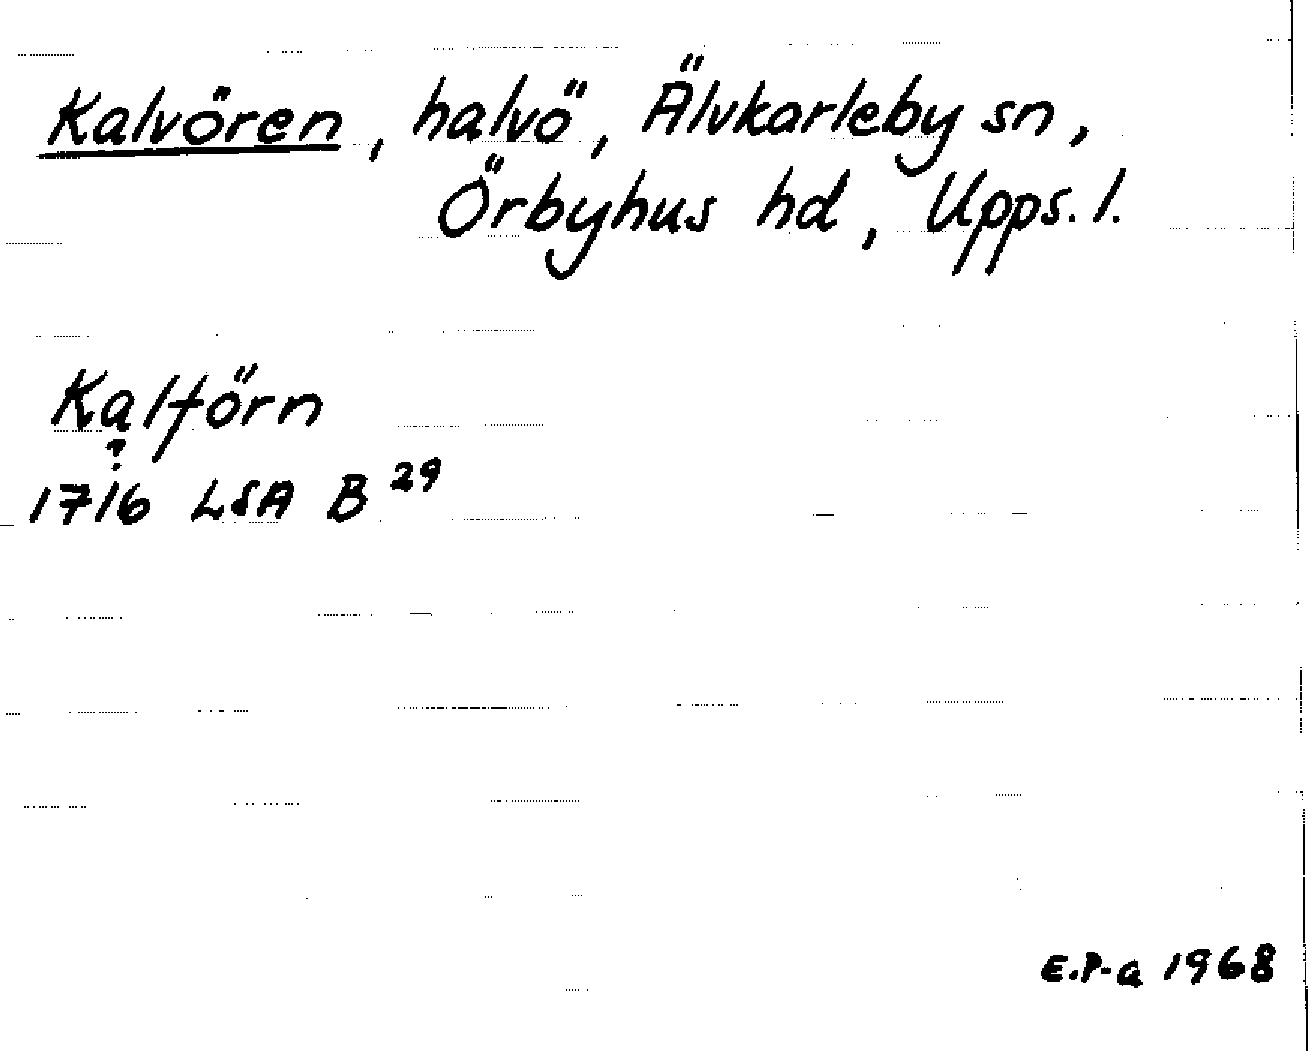 Kalvören, halvö, Älvkarleby sn,
Örbyhus hd, Upps. l.
Kalförn
?
1716 LSA B 29
E.P-a 1968